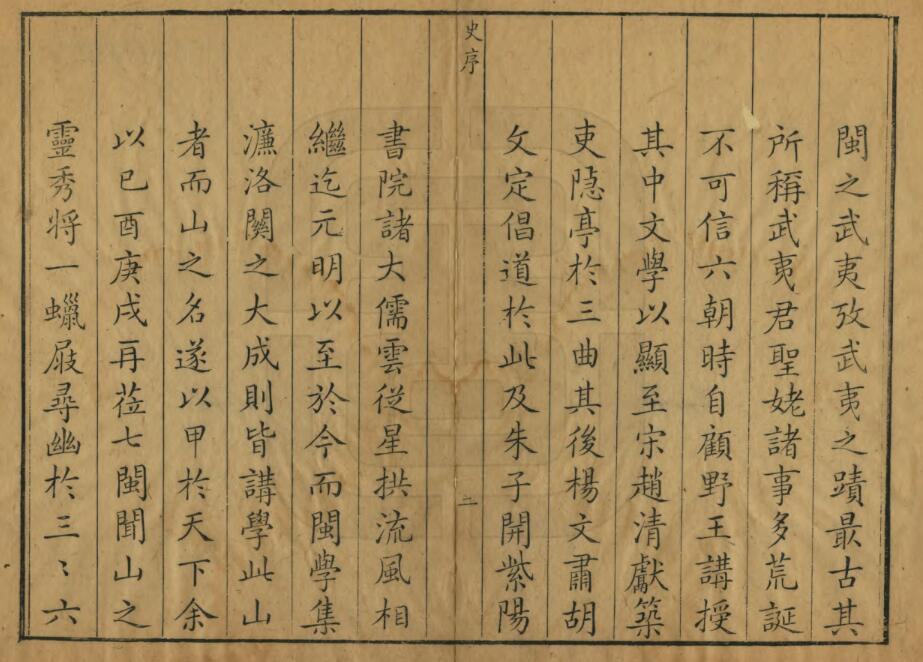 閩之武夷攷武夷之蹟最古其
所稱武夷君聖姥諸事多荒誕
不可信六朝時自顧野王講授
其中文學以顯至宋趙清獻築
吏隠亭於三曲其後楊文肅胡
文定倡道於此及朱子開紫陽
史序
二
書院諸大儒雲從星拱流風相
繼迄元明以至於今而閩學集
濂洛關之大成則皆講學此山
者而山之名遂以甲於天下余
以己酉庚戌再莅七閩聞山之
靈秀将一蠟屐尋幽於三〻六